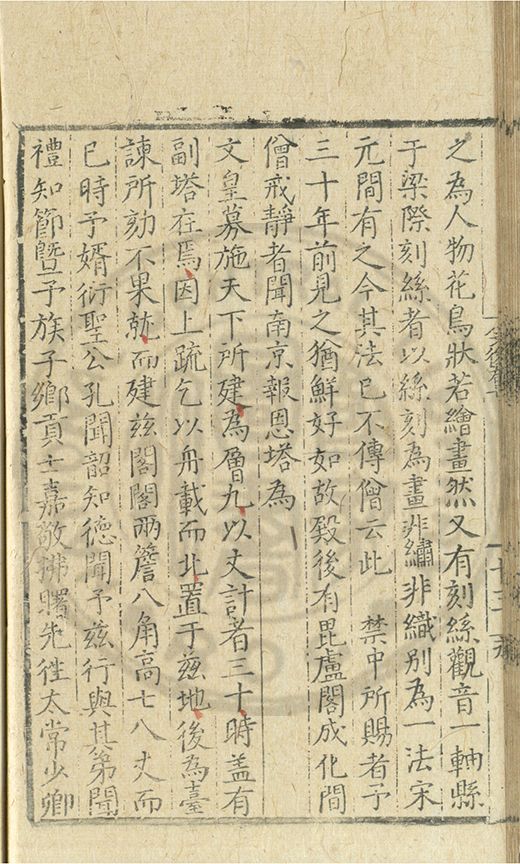 之為人物花鳥狀若繪畫然又有刻絲觀音一軸縣
于梁際刻絲者以絲刻為畫非繡非織別為一法宋
元間有之今其法已不傳僧云此　禁中所賜者予
三十年前見之猶鮮好如故殿後有毘盧閣成化間
僧戒靜者聞南京報恩塔為
文皇募施天下所建為層九以丈計者三十時盖有
副塔在焉因上疏乞以舟載而北置于兹地後為臺
諫所劾不果就而建兹閣閣兩簷八角高七八丈而
已時予婿衍聖公孔聞韶知德聞予兹行與其弟聞
禮知節曁予族子鄉貢士嘉敬拂曙先徃太常少卿